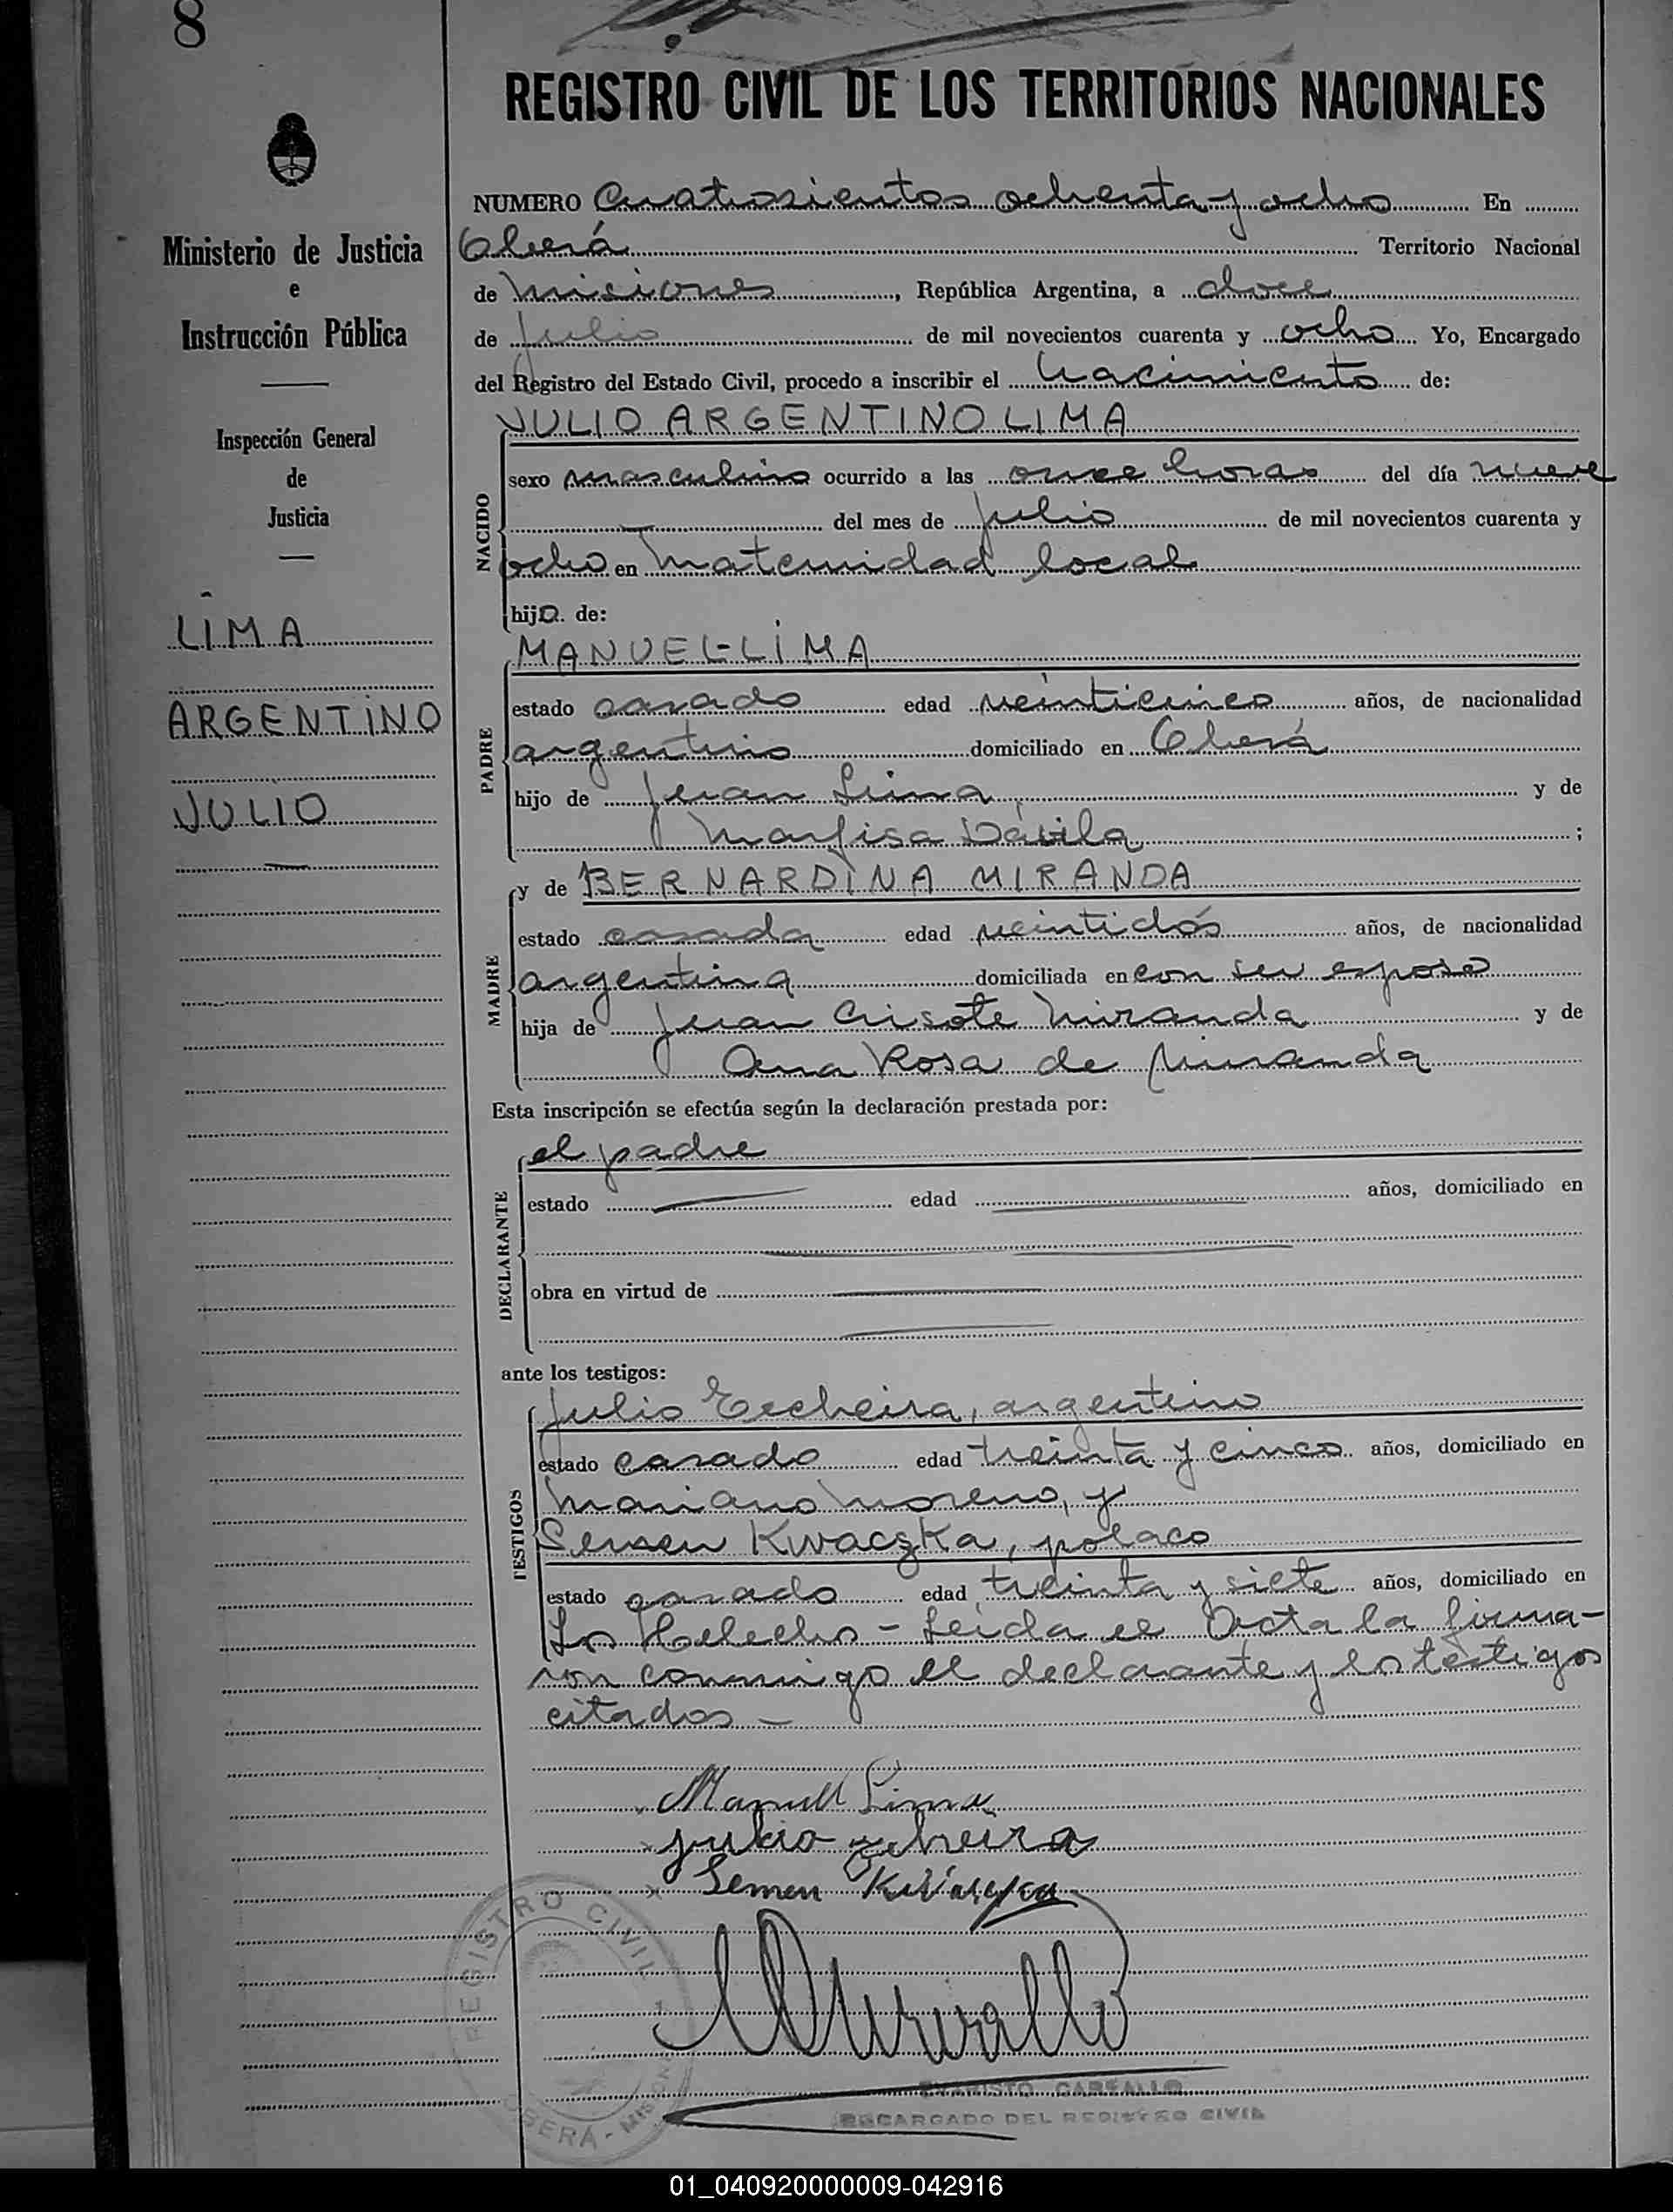 8
REGISTRO CIVIL DE LOS TERRITORIOS NACIONALES
Ministerio de Justicia
e
Instrucción Pública
Inspección General
de
Justicia
LIMA
ARGENTINO
JULIO
NUMERO Cuatrosientos ochenta y ocho En
Oberá Territorio Nacional
de Misiones, República Argentina, a doce
de julio de mil novecientos cuarenta y ocho Yo, Encargado
del Registro del Estado Civil, procedo a inscribir el Nacimiento de:
NACIDO
JULIO ARGENTINO LIMA
sexo masculino ocurrido a las once horas del día nueve
del mes de julio de mil novecientos cuarenta y
ocho en Maternidad local
hijo de:
PADRE
MANUEL LIMA
estado casado edad veinticinco años, de nacionalidad
argentino domiciliado en Oberá
hijo de Juan Lima y de
Marfisa Dávila ;
MADRE
y de BERNARDINA MIRANDA
estado casada edad veintidós años, de nacionalidad
argentina domiciliada en con su esposo
hija de Juan Crisote Miranda y de
Ana Rosa de Miranda
Esta inscripción se efectúa según la declaración prestada por:
DECLARANTE
el padre
estado edad años, domiciliado en
obra en virtud de
ante los testigos:
TESTIGOS
Julio Eecheira, argentino
estado casado edad treinta y cinco años, domiciliado en
Mariano Moreno, y
Semen Kwaczka, polaco
estado casado edad treinta y siete años, domiciliado en
Los Helechos - Leída el Acta la firma-
ron conmigo el declarante y los testigos
citados -
Manuel Lima
Julio
Semen
REGISTRO CIVIL
OBERÁ - MISIONES
EVARISTO CARBALLO
ENCARGADO DEL REGISTRO CIVIL
01_040920000009-042916